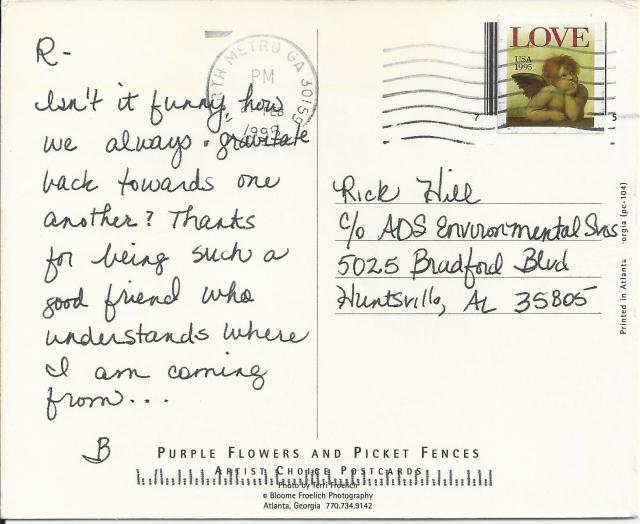 R-
Isn't it funny, how
we always gravitate
back towards one
another? Thanks
for being such a
good friend who
understands where
I am coming
from...
B
NORTH METRO GA 30159
PM
FEB
LOVE
USA
1995
7 5
Rick Hill
c/o ADS Environmental Svcs
5025 Bradford Blvd
Huntsville, AL 35805
Printed in Atlanta
orgia (pc-104)
PURPLE FLOWERS AND PICKET FENCES
ARTIST CHOICE POSTCARDS
Photo by Terri Froelich
© Bloome Froelich Photography
Atlanta, Georgia 770.734.9142